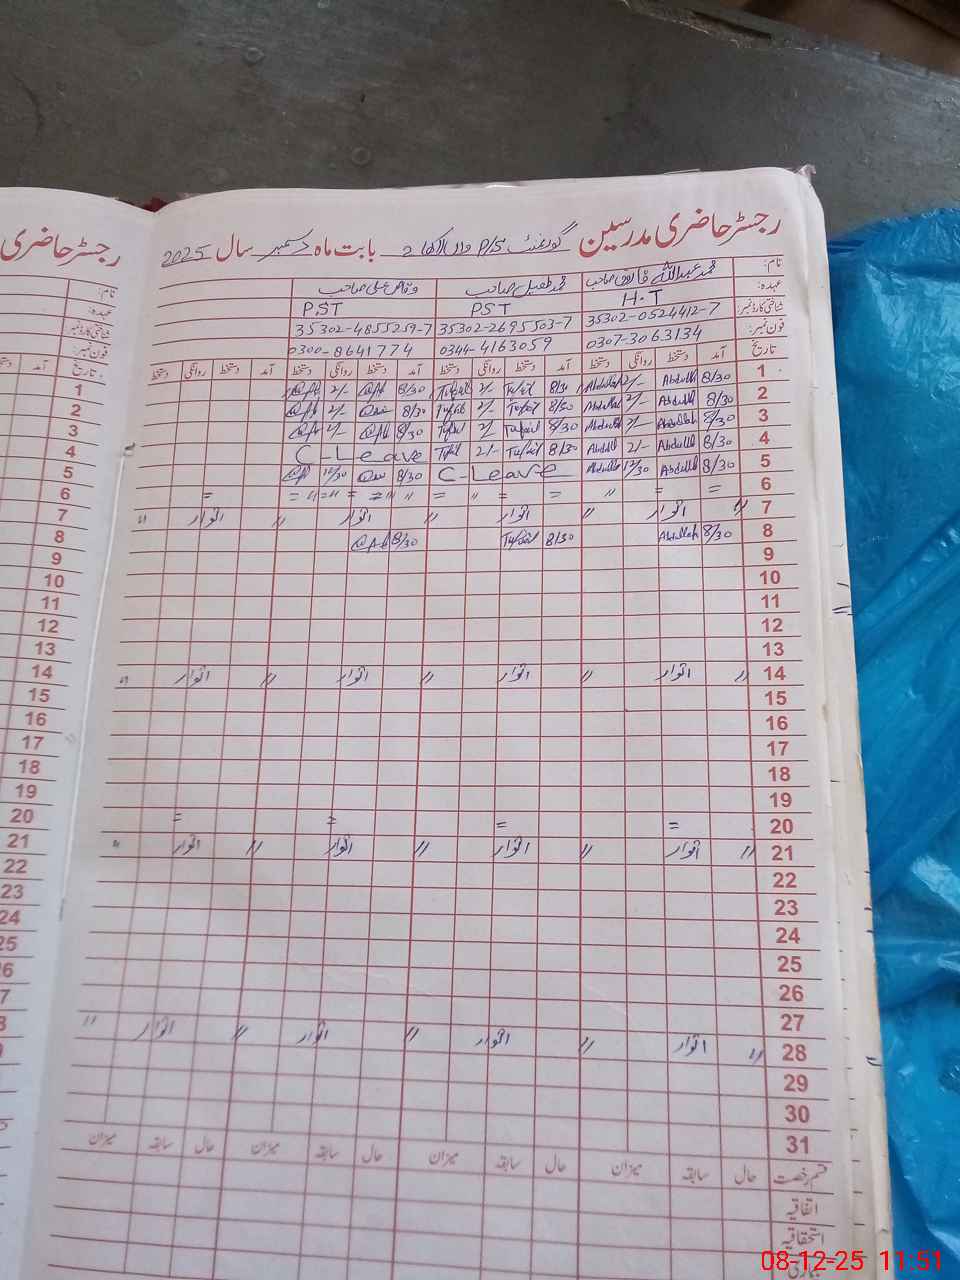 رجسٹر حاضری مدرسین گورنمنٹ P/S 2 بابت ماہ دسمبر سال 2025
رجسٹر حاضری
نام: محمد عبداللہ صاحب محمد طفیل صاحب وقاص علی صاحب
عہدہ: H.T PST PST
شناختی کارڈ نمبر: 35302-0524412-7 35302-2695503-7 35302-4855259-7
فون نمبر: 0307-3063134 0344-4163059 0300-8641774
تاریخ آمد دستخط روانگی دستخط آمد دستخط روانگی دستخط آمد دستخط روانگی دستخط آمد دستخط روانگی دستخط
1 8/30 Abdullah 2/- Abdullah 8/30 Tufail 2/- Tufail 8/30 2/-
2 8/30 Abdullah 2/- Abdullah 8/30 Tufail 2/- Tufail 8/30 2/-
3 8/30 Abdullah 2/- Abdullah 8/30 Tufail 2/- Tufail 8/30 2/-
4 8/30 Abdullah 2/- Abdullah 8/30 Tufail 2/- Tufail C-Leave
5 8/30 Abdullah 12/30 Abdullah C-Leave 8/30 12/30
6 = = " = = " = = " = " = =
7 " اتوار " اتوار " اتوار " اتوار "
8 8/30 Abdullah 8/30 Tufail 8/30
9
10
11
12
13
14 " اتوار " اتوار " اتوار " اتوار "
15
16
17
18
19
20 = = = =
21 " اتوار " اتوار " اتوار " اتوار "
22
23
24
25
26
27
28 " اتوار " اتوار " اتوار " اتوار "
29
30
31
قسم رخصت حال سابقہ میزان حال سابقہ میزان حال سابقہ میزان حال سابقہ میزان
اتفاقیہ
استحقاقیہ
نام:
عہدہ:
شناختی کارڈ نمبر:
فون نمبر:
تاریخ آمد
1
2
3
4
5
6
7
8
9
10
11
12
13
14
15
16
17
18
19
20
21
22
23
24
25
08-12-25 11:51